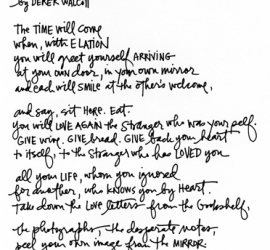 by DEREK WALCOTT
The TIME will come
when, with ELATION
you will greet yourself ARRIVING
at your own door, in your own mirror
and each will SMILE at the other's welcome,
and say, sit HERE. Eat.
You will LOVE AGAIN the Stranger who was your self.
GIVE wine. GIVE bread. GIVE back your heart
to itself, to the Stranger who has LOVED you
all your LIFE, whom you ignored
for another, who KNOWS you by HEART.
Take down the LOVE letters from the bookshelf,
the photographs, the desperate notes,
peel your own image from the MIRROR